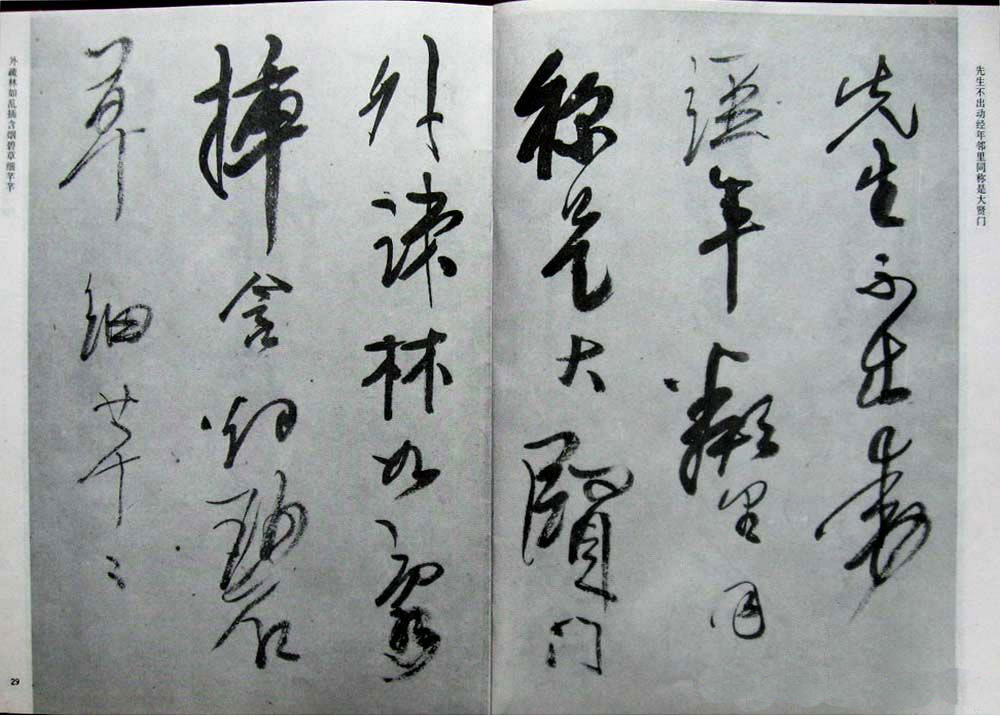 先生不出动经年邻里同称是大贤门
先生不出動
經年鄰里同
称是大賢门
外疎林如亂
插含烟碧
草細芊〻
外疏林如乱插含烟碧草细芊芊
29